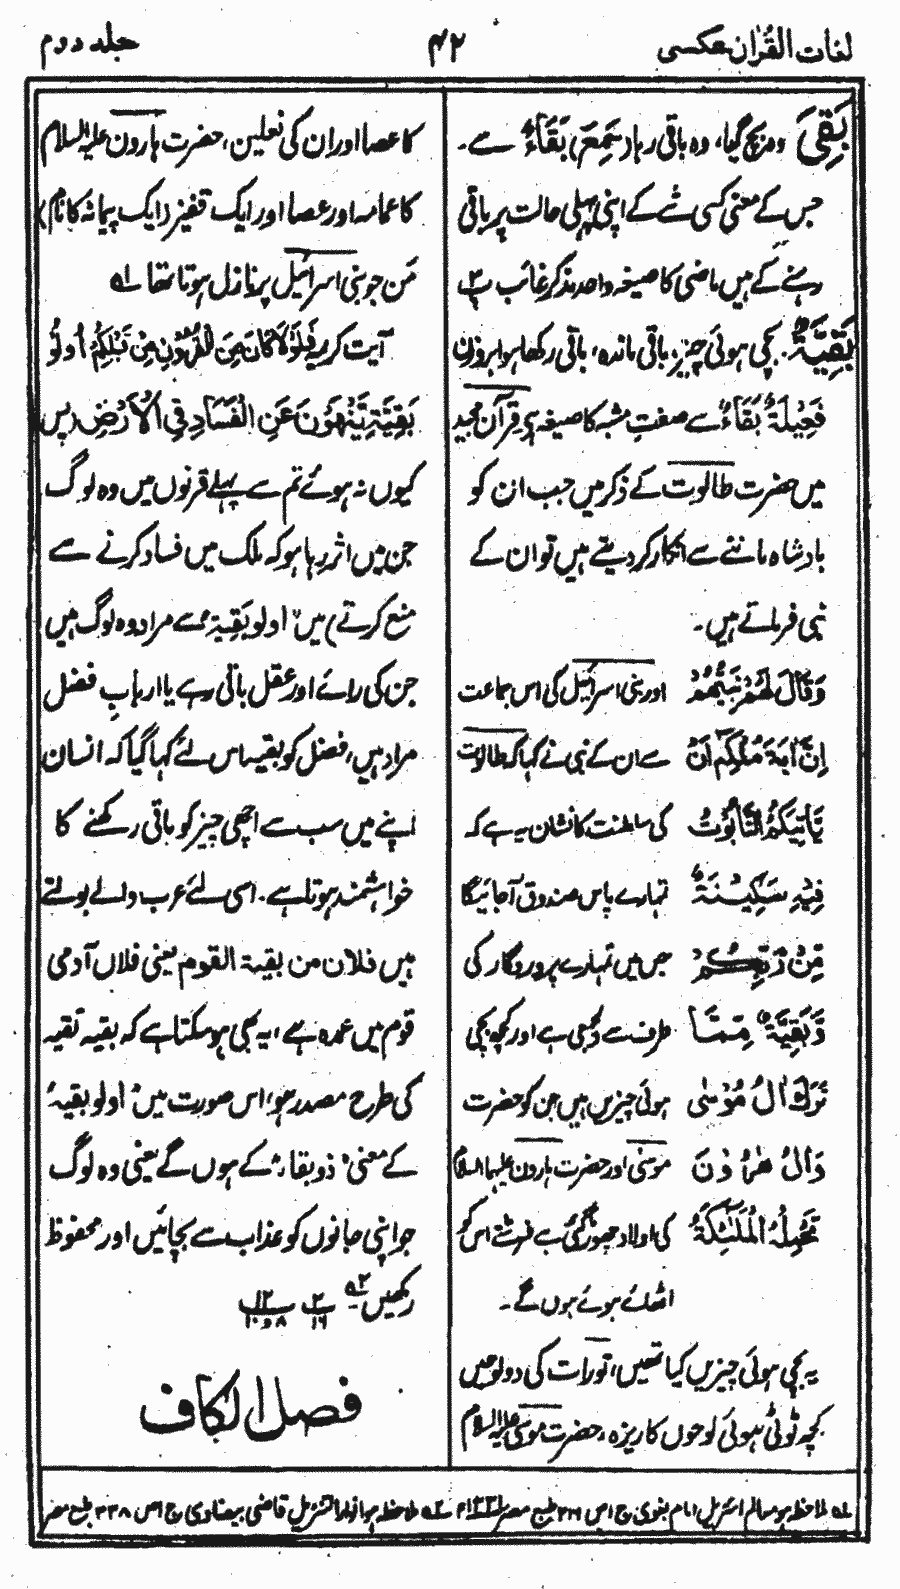 لغات القرآن عکسی
۴۲
جلد دوم
بَقِیَ وہ بچ گیا، وہ باقی رہا (سَمِعَ) بَقَاءٌ سے۔
جس کے معنی کسی شے کے اپنی پہلی حالت پر باقی
رہنے کے ہیں ماضی کا صیغہ واحد مذکر غائب
بَقِیَّۃٌ بچی ہوئی چیز، باقی ماندہ، باقی رکھا ہوا بروزن
فَعِیْلَۃٌ بَقَاءٌ سے صفت مشبہ کا صیغہ ہے قرآن مجید
میں حضرت طالوت کے ذکر میں جب ان کو
بادشاہ ماننے سے انکار کر دیتے ہیں تو ان کے
نبی فرماتے ہیں۔
وَقَالَ لَھُمْ نَبِیُّھُمْ اور بنی اسرائیل کی اس جماعت
اِنَّ اٰیَۃَ مُلْکِہٖٓ اَنْ سے ان کے نبی نے کہا کہ طالوت
یَّاْتِیَکُمُ التَّابُوْتُ کی سلطنت کا نشان یہ ہے کہ
فِیْہِ سَکِیْنَۃٌ تمہارے پاس صندوق آجائیگا
مِّنْ رَّبِّکُمْ جس میں تمہارے پروردگار کی
وَبَقِیَّۃٌ مِّمَّا طرف سے دلجمعی ہے اور کچھ بچی
تَرَکَ اٰلُ مُوْسٰی ہوئی چیزیں ہیں جن کو حضرت
وَاٰلُ ھٰرُوْنَ موسیٰ اور حضرت ہارون علیہما السلام
تَحْمِلُہُ الْمَلٰٓئِکَۃُ کی اولاد چھوڑ گئی ہے فرشتے اس کو
اٹھائے ہوئے ہوں گے۔
یہ بچی ہوئی چیزیں کیا تھیں، تورات کی دو لوحیں
کچھ ٹوٹی ہوئی لوحوں کا ریزہ، حضرت موسیٰ علیہ السلام
کا عصا اور ان کی نعلین، حضرت ہارون علیہ السلام
کا عمامہ اور عصا اور ایک قفیز (ایک پیمانہ کا نام)
مَن جو بنی اسرائیل پر نازل ہوتا تھا ۱ھ
آیت کریمہ فَلَوْلَا کَانَ مِنَ الْقُرُوْنِ مِنْ قَبْلِکُمْ اُولُوْ
بَقِیَّۃٍ یَّنْھَوْنَ عَنِ الْفَسَادِ فِی الْاَرْضِ (پس
کیوں نہ ہوئے تم سے پہلے قرنوں میں وہ لوگ
جن میں اثر رہا ہو کہ ملک میں فساد کرنے سے
منع کرتے) میں "اولو بقیۃ" سے مراد وہ لوگ ہیں
جن کی رائے اور عقل باقی رہے یا ارباب فضل
مراد ہیں، فضل کو بقیہ اس لئے کہا گیا کہ انسان
اپنے میں سب سے اچھی چیز کو باقی رکھنے کا
خواہشمند ہوتا ہے۔ اسی لئے عرب والے بولتے
ہیں فلان من بقیۃ القوم یعنی فلاں آدمی
قوم میں عمدہ ہے، یہ بھی ہو سکتا ہے کہ بقیہ تقیہ
کی طرح مصدر ہو، اس صورت میں "اولو بقیہ"
کے معنی "ذو بقاء" کے ہوں گے یعنی وہ لوگ
جو اپنی جانوں کو عذاب سے بچائیں اور محفوظ
رکھیں ۲ھ
فصل الکاف
۱ھ ملاحظہ ہو معالم التنزیل امام بغوی ج ۱ ص طبع مصر ۲ھ ملاحظہ ہو انوار التنزیل قاضی بیضاوی ج ۱ ص ۳۳۸ طبع مصر